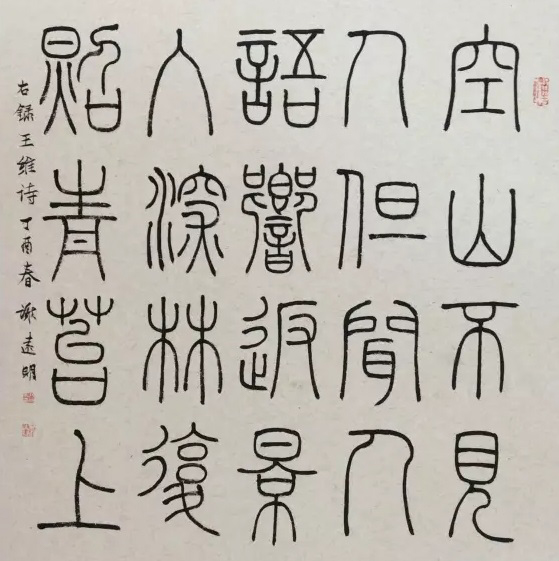 空山不見
人但聞人
語響返景
入深林復
照青苔上
右録王維詩 丁酉春 謝遠明